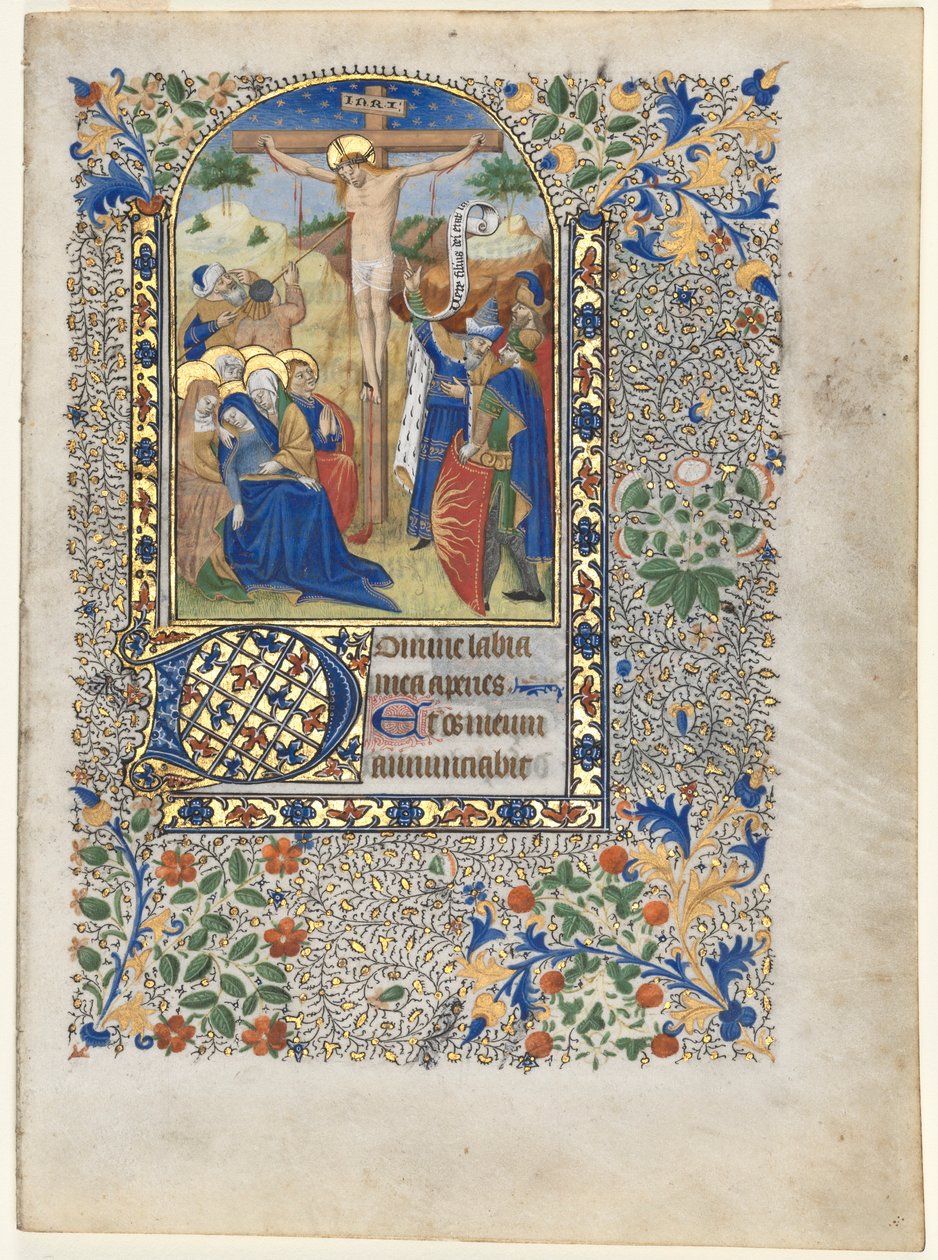 I.N.R.I.
Vere filius dei erat is
Domine labia
mea aperies
Et os meum
annunciabit